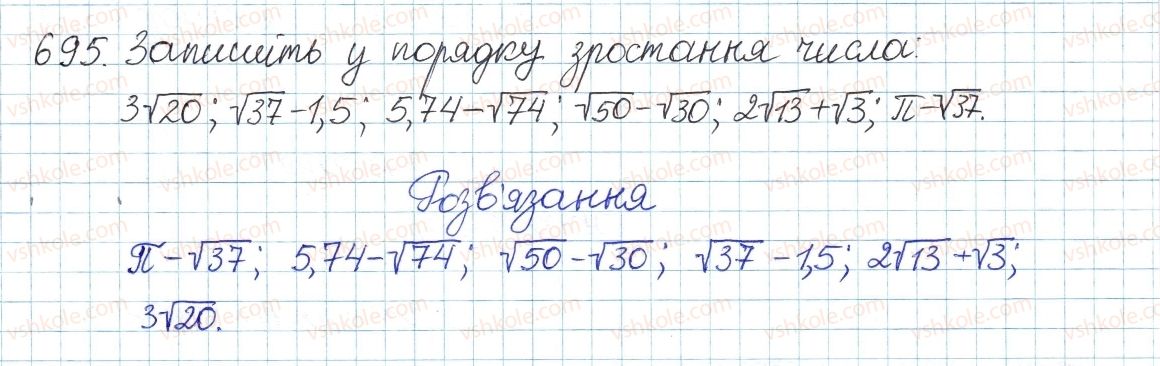 695. Запишіть у порядку зростання числа:
3√20; √37-1,5; 5,74-√74; √50-√30; 2√13+√3; π-√37.
Розв'язання
π-√37; 5,74-√74; √50-√30; √37-1,5; 2√13+√3;
3√20.